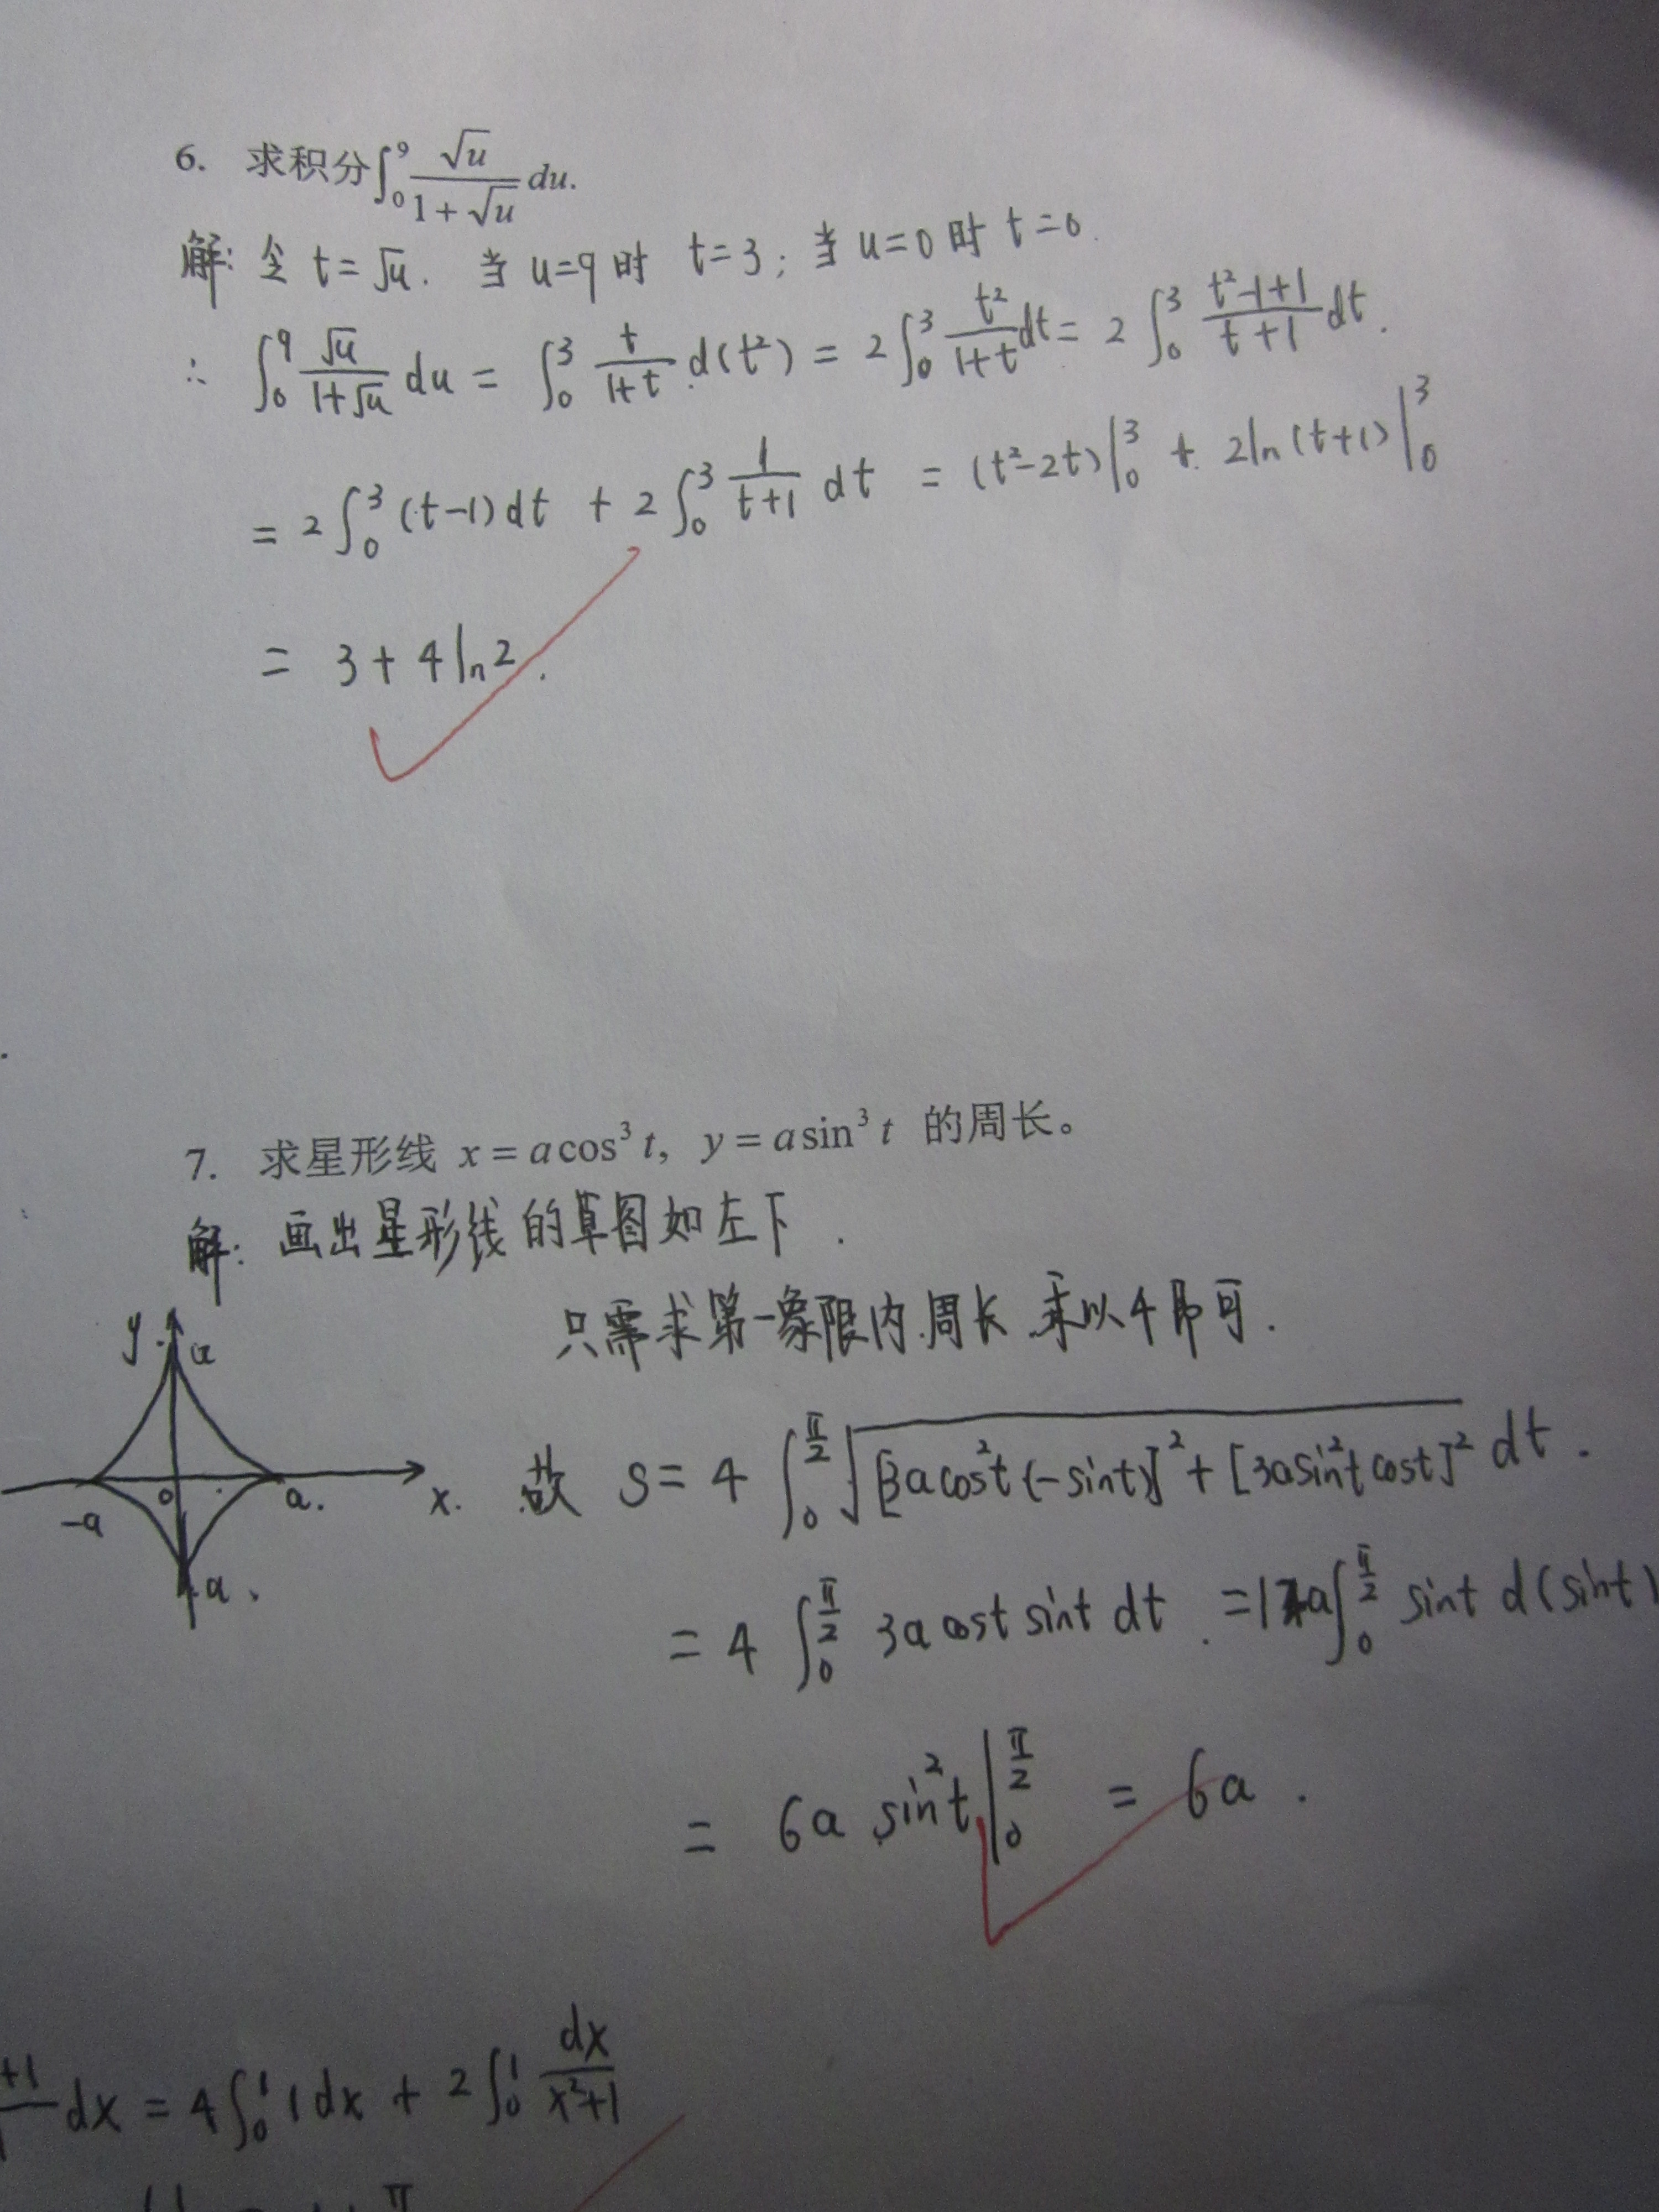 6. 求积分∫₀⁹ √u/(1+√u) du.
解: 令 t=√u. 当 u=9 时 t=3; 当 u=0 时 t=0.
∴ ∫₀⁹ √u/(1+√u) du = ∫₀³ t/(1+t) d(t²) = 2∫₀³ t²/(1+t) dt = 2∫₀³ (t²-1+1)/(t+1) dt.
= 2∫₀³ (t-1)dt + 2∫₀³ 1/(t+1) dt = (t²-2t)|₀³ + 2ln(t+1)|₀³
= 3+4ln2.
7. 求星形线 x=acos³t, y=asin³t 的周长。
解: 画出星形线的草图如左下.
只需求第一象限内周长 乘以4即可.
y a
-a 0 a. x.
-a
故 S=4∫₀^(π/2) √([3acos²t(-sint)]²+[3asin²tcost]²) dt.
=4∫₀^(π/2) 3acost sint dt. =12a∫₀^(π/2) sint d(sint)
= 6a sin²t|₀^(π/2) = 6a.
+1 dx = 4∫₀¹ 1dx + 2∫₀¹ dx/(x²+1)
π